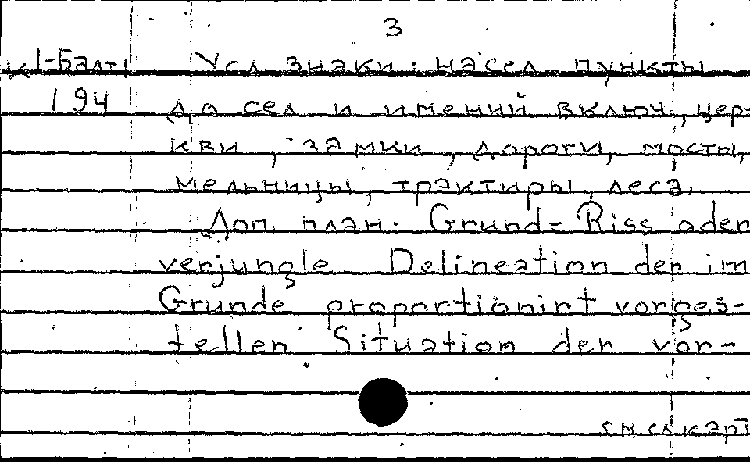 3
К1-Балт Усл. знаки: насел. пункты
194 до сел и имений включ., цер-
кви, замки, дороги, мосты,
мельницы, трактиры, леса.
Доп. план: Grund-Riss oder
verjungle Delineation der im
Grunde proportionirt vorges-
tellen Situation der vor-
см. сл. карт